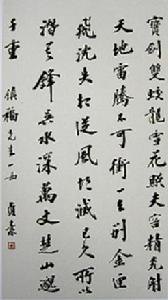 寶劍雙蛟龍雪花照芙蓉精光射
天地雷騰不可衝一去別金匣
飛沉失相從風胡滅已久所以
潛其鋒吳水深萬丈楚山邈
千重 福先生